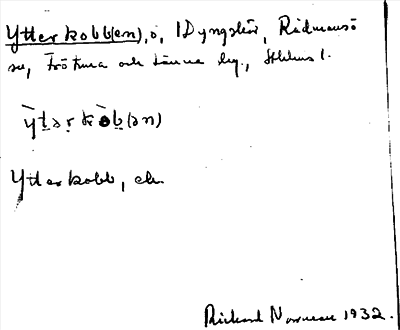 Ytterkobb(en), ö, i Dyngskär, Rådmansö
sn, Frötuna och Länna lag, Sthlms l.
ȳtərkòb(ən)
Ytterkobb, ek.
Rickard Norrman 1932.